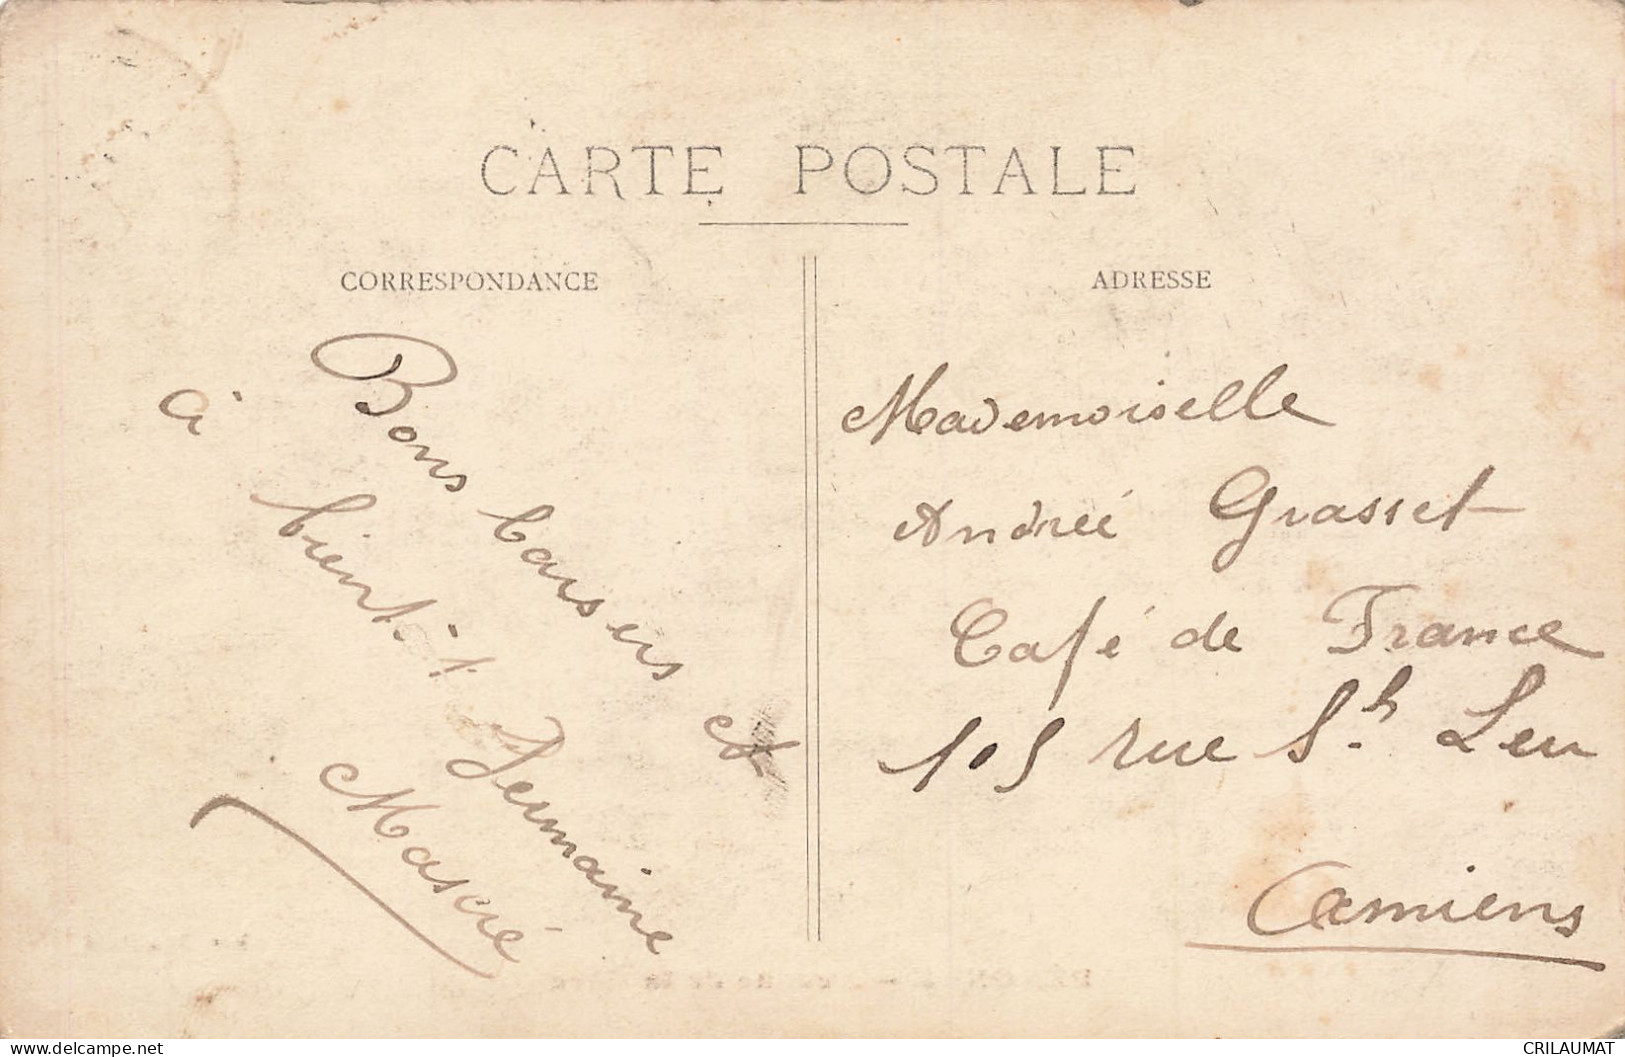 CARTE POSTALE
CORRESPONDANCE
ADRESSE
Bons baisers et
à bientôt
Germaine
Mascré
Mademoiselle
Andrée Grasset
Café de France
105 rue St Leu
Amiens
www.delcampe.net
CRILAUMAT